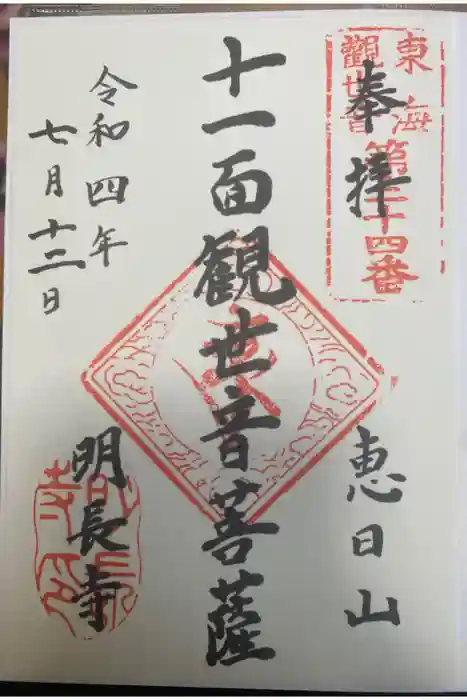 奉拝
東海
観世音
第三十四番
恵日山
十一面観世音菩薩
明長寺
令和四年
七月十二日